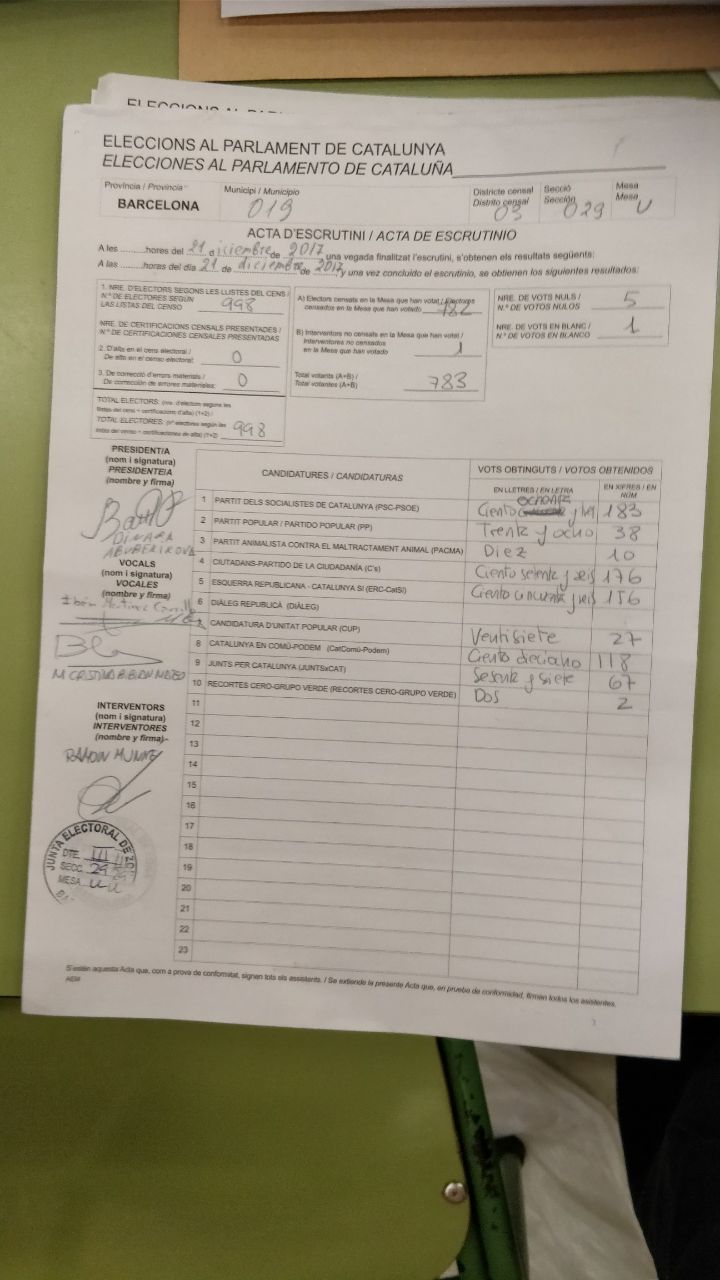 ELECCIONS AL PARLAMENT DE CATALUNYA
ELECCIONES AL PARLAMENTO DE CATALUÑA
Província / Provincia
BARCELONA
Municipi / Municipio
019
Districte censal
Distrito censal
03
Secció
Sección
029
Mesa
Mesa
U
ACTA D'ESCRUTINI / ACTA DE ESCRUTINIO
A les ..........hores del 21 d diciembre de 2017 una vegada finalitzat l'escrutini, s'obtenen els resultats següents:
A las ..........horas del día 21 de diciembre de 2017 y una vez concluido el escrutinio, se obtienen los siguientes resultados:
1. NRE. D'ELECTORS SEGONS LES LLISTES DEL CENS /
N.º DE ELECTORES SEGÚN
LAS LISTAS DEL CENSO 998
NRE. DE CERTIFICACIONS CENSALS PRESENTADES /
N.º DE CERTIFICACIONES CENSALES PRESENTADAS
2. D'alta en el cens electoral /
De alta en el censo electoral: 0
3. De correcció d'errors materials /
De corrección de errores materiales: 0
TOTAL ELECTORS: (nre. d'electors segons les
llistes del cens + certificacions d'alta) (1+2) /
TOTAL ELECTORES: (nº electores según las
listas del censo + certificaciones de alta) (1+2) 998
A) Electors censats en la Mesa que han votat / Electores
censados en la Mesa que han votado 782
B) Interventors no censats en la Mesa que han votat /
Interventores no censados
en la Mesa que han votado 1
Total votants (A+B) /
Total votantes (A+B) 783
NRE. DE VOTS NULS /
N.º DE VOTOS NULOS 5
NRE. DE VOTS EN BLANC /
N.º DE VOTOS EN BLANCO 1
PRESIDENT/A
(nom i signatura)
PRESIDENTE/A
(nombre y firma)
DINARA
VOCALS
(nom i signatura)
VOCALES
(nombre y firma)
INTERVENTORS
(nom i signatura)
INTERVENTORES
(nombre y firma)
RAMON MUNOZ
JUNTA ELECTORAL DE
DTE. III
SECC. 29
MESA U
CANDIDATURES / CANDIDATURAS
VOTS OBTINGUTS / VOTOS OBTENIDOS
EN LLETRES / EN LETRA
EN XIFRES / EN NÚM
1 PARTIT DELS SOCIALISTES DE CATALUNYA (PSC-PSOE) Ciento ochenta y tres 183
2 PARTIT POPULAR / PARTIDO POPULAR (PP) Trenta y ocho 38
3 PARTIT ANIMALISTA CONTRA EL MALTRACTAMENT ANIMAL (PACMA) Diez 10
4 CIUTADANS-PARTIDO DE LA CIUDADANÍA (C's) Ciento setenta y seis 176
5 ESQUERRA REPUBLICANA - CATALUNYA SÍ (ERC-CatSí) Ciento cincuenta y seis 156
6 DIÀLEG REPUBLICÀ (DIÀLEG)
7 CANDIDATURA D'UNITAT POPULAR (CUP) Ventisiete 27
8 CATALUNYA EN COMÚ-PODEM (CatComú-Podem) Ciento dieciocho 118
9 JUNTS PER CATALUNYA (JUNTSxCAT) Sesenta y siete 67
10 RECORTES CERO-GRUPO VERDE (RECORTES CERO-GRUPO VERDE) Dos 2
11
12
13
14
15
16
17
18
19
20
21
22
23
S'estén aquesta Acta que, com a prova de conformitat, signen tots els assistents. / Se extiende la presente Acta que, en prueba de conformidad, firman todos los asistentes.